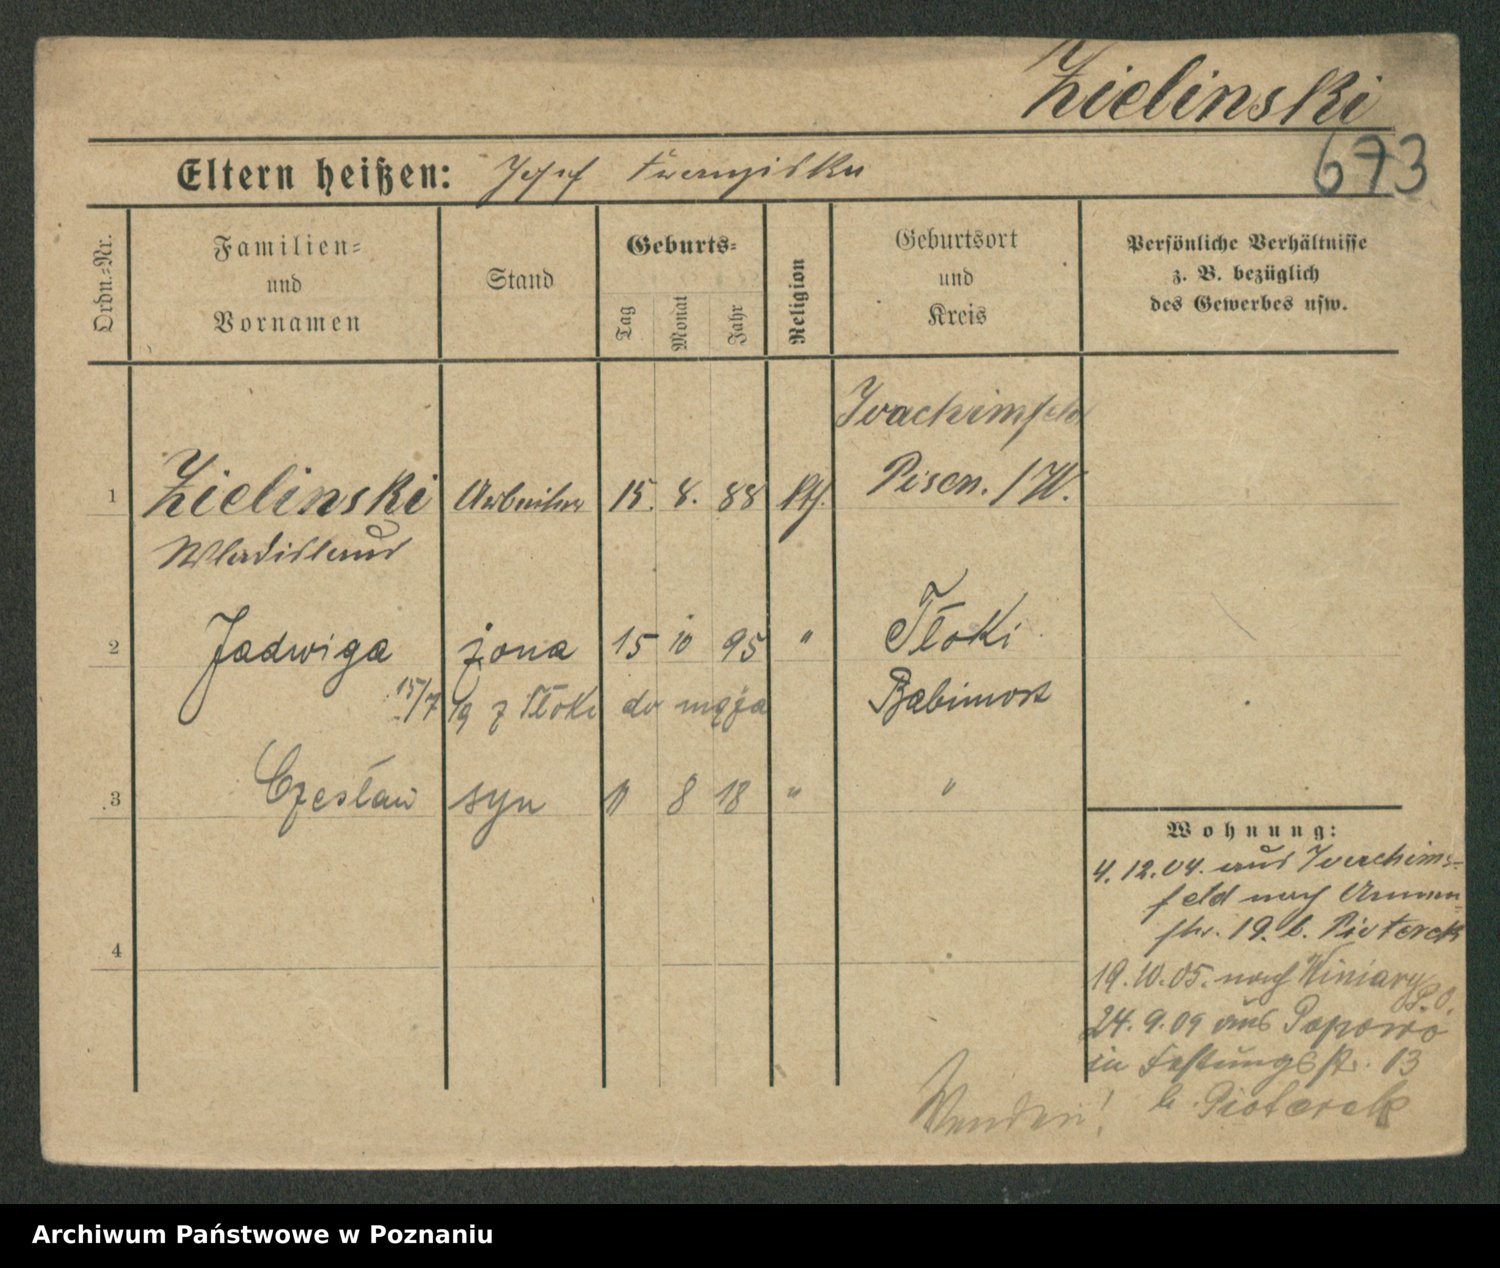 Zielinski
673
Eltern heißen: Josef Franziska
Ordn.-Nr.
Familien-
und
Vornamen
Stand
Geburts-
Tag
Monat
Jahr
Religion
Geburtsort
und
Kreis
Persönliche Verhältnisse
z. B. bezüglich
des Gewerbes usw.
Joachimsfeld
1 Zielinski Arbeiter 15. 8. 88 kth. Pisen. /W.
Wladislaus
2 Jadwiga żona 15 10 95 " Tłoki
15/7 19 z Tłoki do męża Babimost
3 Czesław syn 11 8 18 " "
4
Wohnung:
4.12.04. aus Joachims-
feld nach Annen-
str. 19. b. Piotorek
19.10.05. nach Winiary P.O.
24.9.09 aus Popowo
in Festungsstr. 13
b. Piotorek
Wenden!
Archiwum Państwowe w Poznaniu